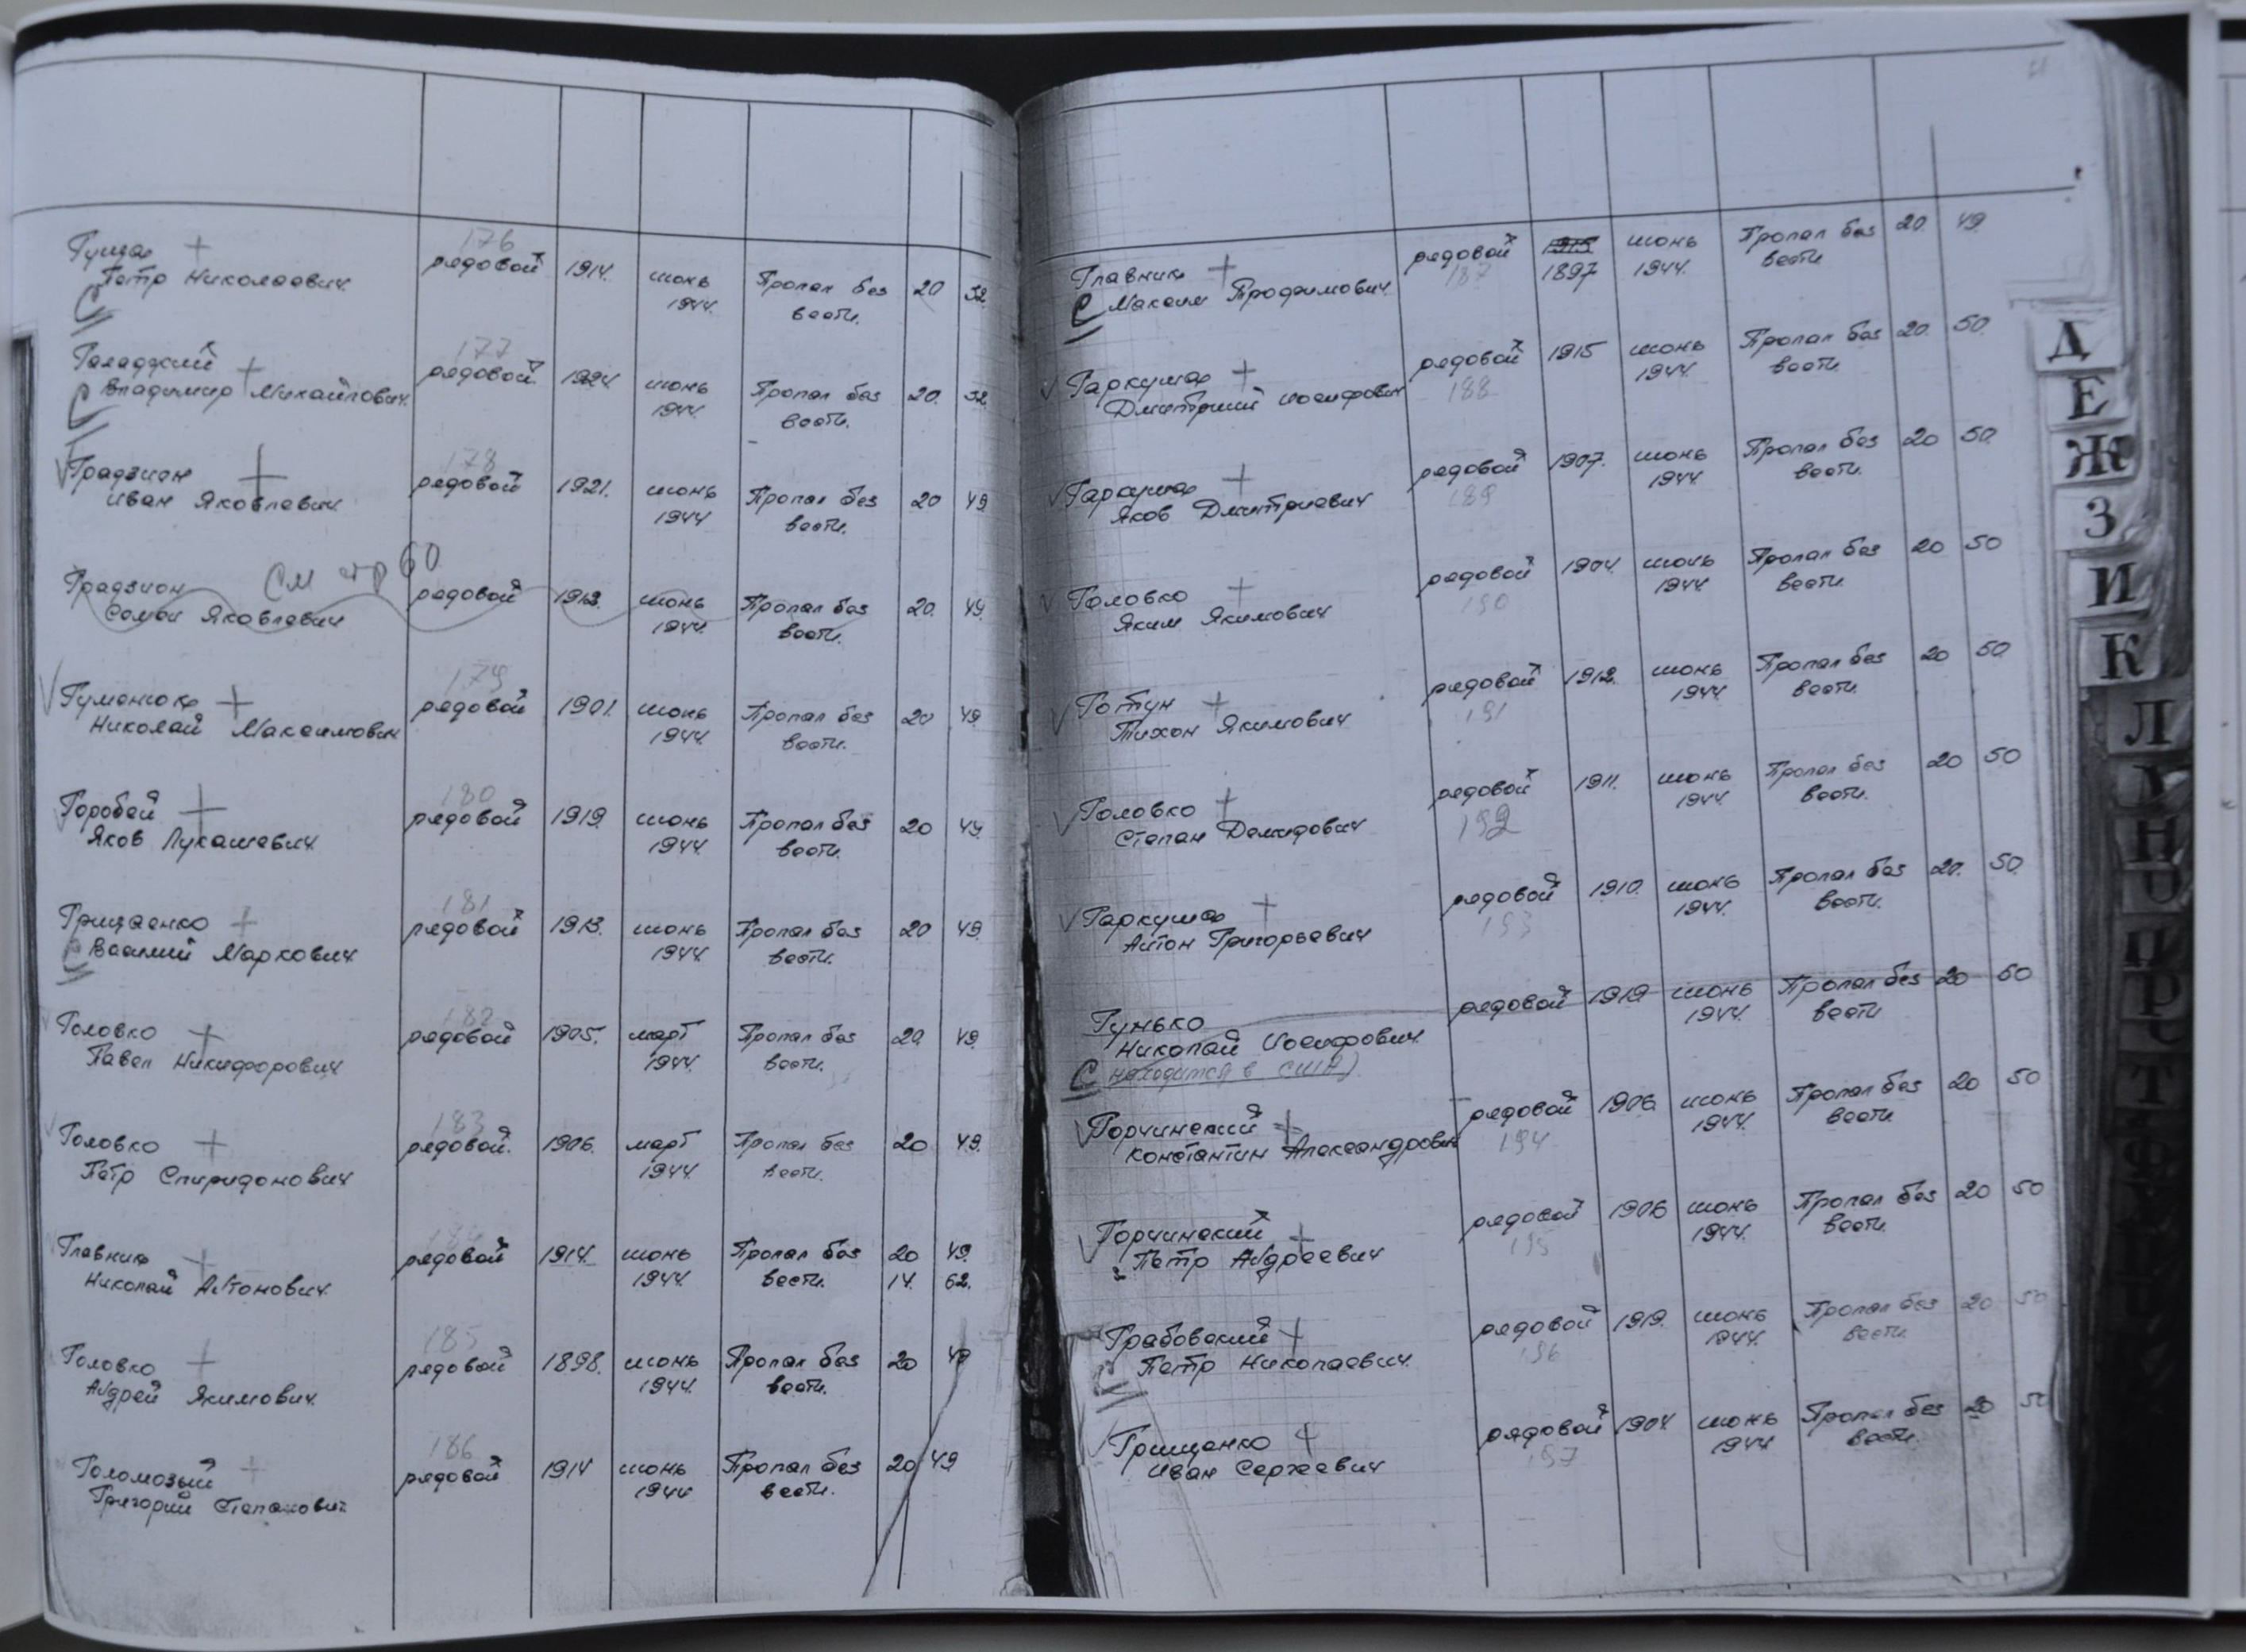 Гуща + 176 рядовой 1914. июнь 1944. Пропал без вести. 20 32
Петр Николаевич
С
Галадский + 177 рядовой 1924 июнь 1944. Пропал без вести. 20. 32
С Владимир Михайлович
√ Градзион + 178 рядовой 1921. июнь 1944 Пропал без вести. 20 49
Иван Яковлевич
Градзион См стр 60 рядовой 1913. июнь 1944. Пропал без вести. 20. 49
Семен Яковлевич
√ Гуменюк + 179 рядовой 1901. июнь 1944. Пропал без вести. 20 49
Николай Максимович
√ Горобей + 180 рядовой 1919. июнь 1944. Пропал без вести. 20 49
Яков Лукашевич
Грищенко + 181 рядовой 1913. июнь 1944. Пропал без вести. 20 49
С Василий Маркович
√ Головко + 182 рядовой 1905. март 1944. Пропал без вести. 20. 49
Павел Никифорович
√ Головко + 183 рядовой. 1906. март 1944. Пропал без вести. 20 49.
Петр Спиридонович
√ Главник + 184 рядовой 1914. июнь 1944. Пропал без вести. 20 49.
Николай Антонович 14. 62.
Головко + 185 рядовой 1898. июнь 1944. Пропал без вести. 20 49
Андрей Якимович.
Голомозый + 186 рядовой 1914 июнь 1944 Пропал без вести. 20 49
Григорий Степанович
Главник + рядовой 187 1897 июнь 1944. Пропал без вести 20. 49
С Максим Трофимович
√ Гаркуша + рядовой 188 1915 июнь 1944. Пропал без вести. 20. 50.
Дмитрий Иосифович
√ Гаркуша + рядовой 189 1907. июнь 1944. Пропал без вести. 20 50.
Яков Дмитриевич
√ Головко + рядовой 190 1904. июнь 1944. Пропал без вести. 20 50
Яким Якимович
√ Готун + рядовой 191 1912. июнь 1944. Пропал без вести. 20 50.
Тихон Якимович
√ Головко + рядовой 192 1911. июнь 1944. Пропал без вести. 20 50
Степан Демидович
√ Гаркуша + рядовой 193 1910. июнь 1944. Пропал без вести. 20. 50.
Антон Григорьевич
Гунько рядовой 1919 июнь 1944. Пропал без вести 20 50
Николай Иосифович
С находится в США)
√ Горчинский + рядовой 194 1906. июнь 1944. Пропал без вести. 20 50
Константин Александрович
√ Горчинский + рядовой 195 1906 июнь 1944. Пропал без вести. 20 50
Петр Андреевич
Грабовский + рядовой 196 1919. июнь 1944. Пропал без вести. 20 50
С Петр Николаевич
√ Грищенко + рядовой 197 1904. июнь 1944 Пропал без вести. 20 50
Иван Сергеевич
Д
Е
Ж
З
И
К
Л
Н
О
П
Р
Т